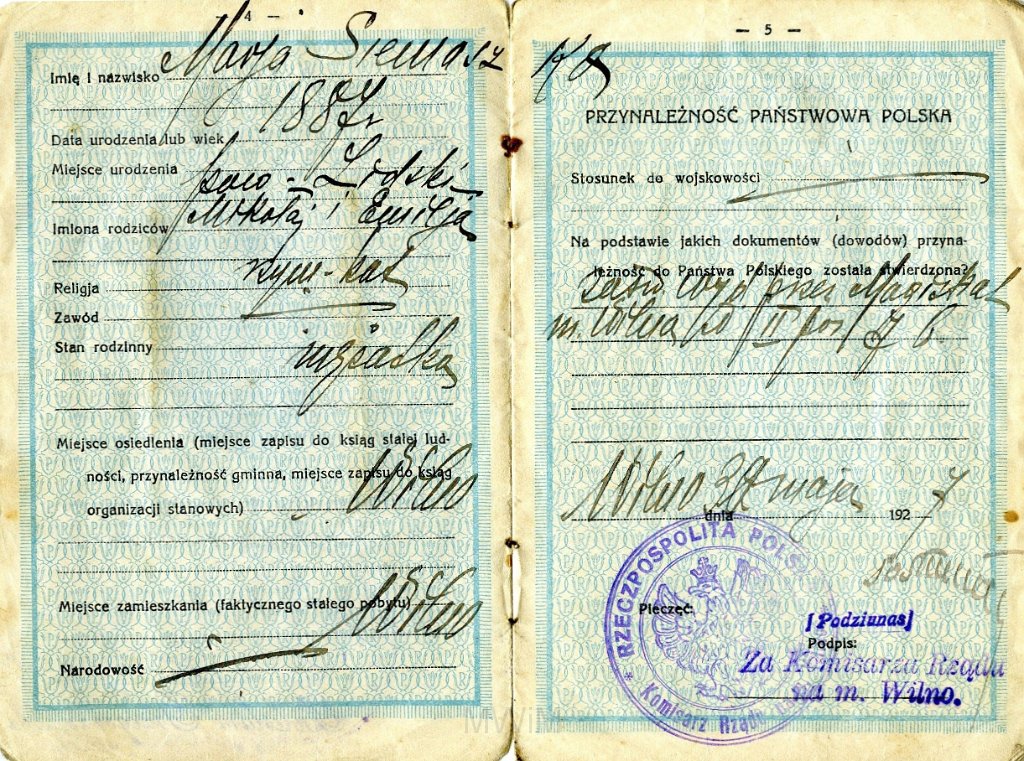 — 4 —
Imię i nazwisko Marja Siemaszko
Data urodzenia lub wiek 1887 r
Miejsce urodzenia pow. Lidski
Imiona rodziców Mikołaj i Emilja
Religja rzym-kat
Zawód
Stan rodzinny mężatka
Miejsce osiedlenia (miejsce zapisu do ksiąg stałej lud-
ności, przynależność gminna, miejsce zapisu do ksiąg
organizacji stanowych) Wilno
Miejsce zamieszkania (faktycznego stałego pobytu) Wilno
Narodowość
— 5 —
PRZYNALEŻNOŚĆ PAŃSTWOWA POLSKA
Stosunek do wojskowości
Na podstawie jakich dokumentów (dowodów) przyna-
leżność do Państwa Polskiego została stwierdzona?
wyd przez Magistrat
m. Wilna II
Wilno dnia maja 1927
RZECZPOSPOLITA POLSKA
Komisarz Rządu
Pieczęć:
[Podziunas]
Podpis:
Za Komisarza Rządu
na m. Wilno.
MWiN